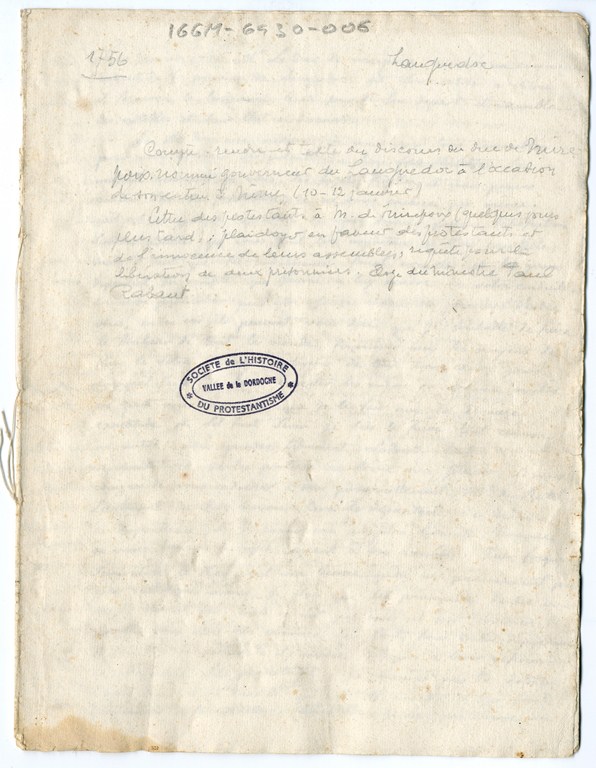 166M-6930-006
1756
Languedoc
Compte-rendu et texte du discours du duc de Mire-
poix, nommé gouverneur du Languedoc à l'occasion
de son entrée à Nîmes (10-12 janvier)
Lettre des protestants à M. de Mirepoix (quelques jours
plus tard) ; plaidoyer en faveur des protestants et
de l'innocence de leurs assemblées, requête pour la
libération de deux prisonniers. Eloge du ministre Paul
Rabaut
SOCIETE de L'HISTOIRE
VALLEE de la DORDOGNE
DU PROTESTANTISME